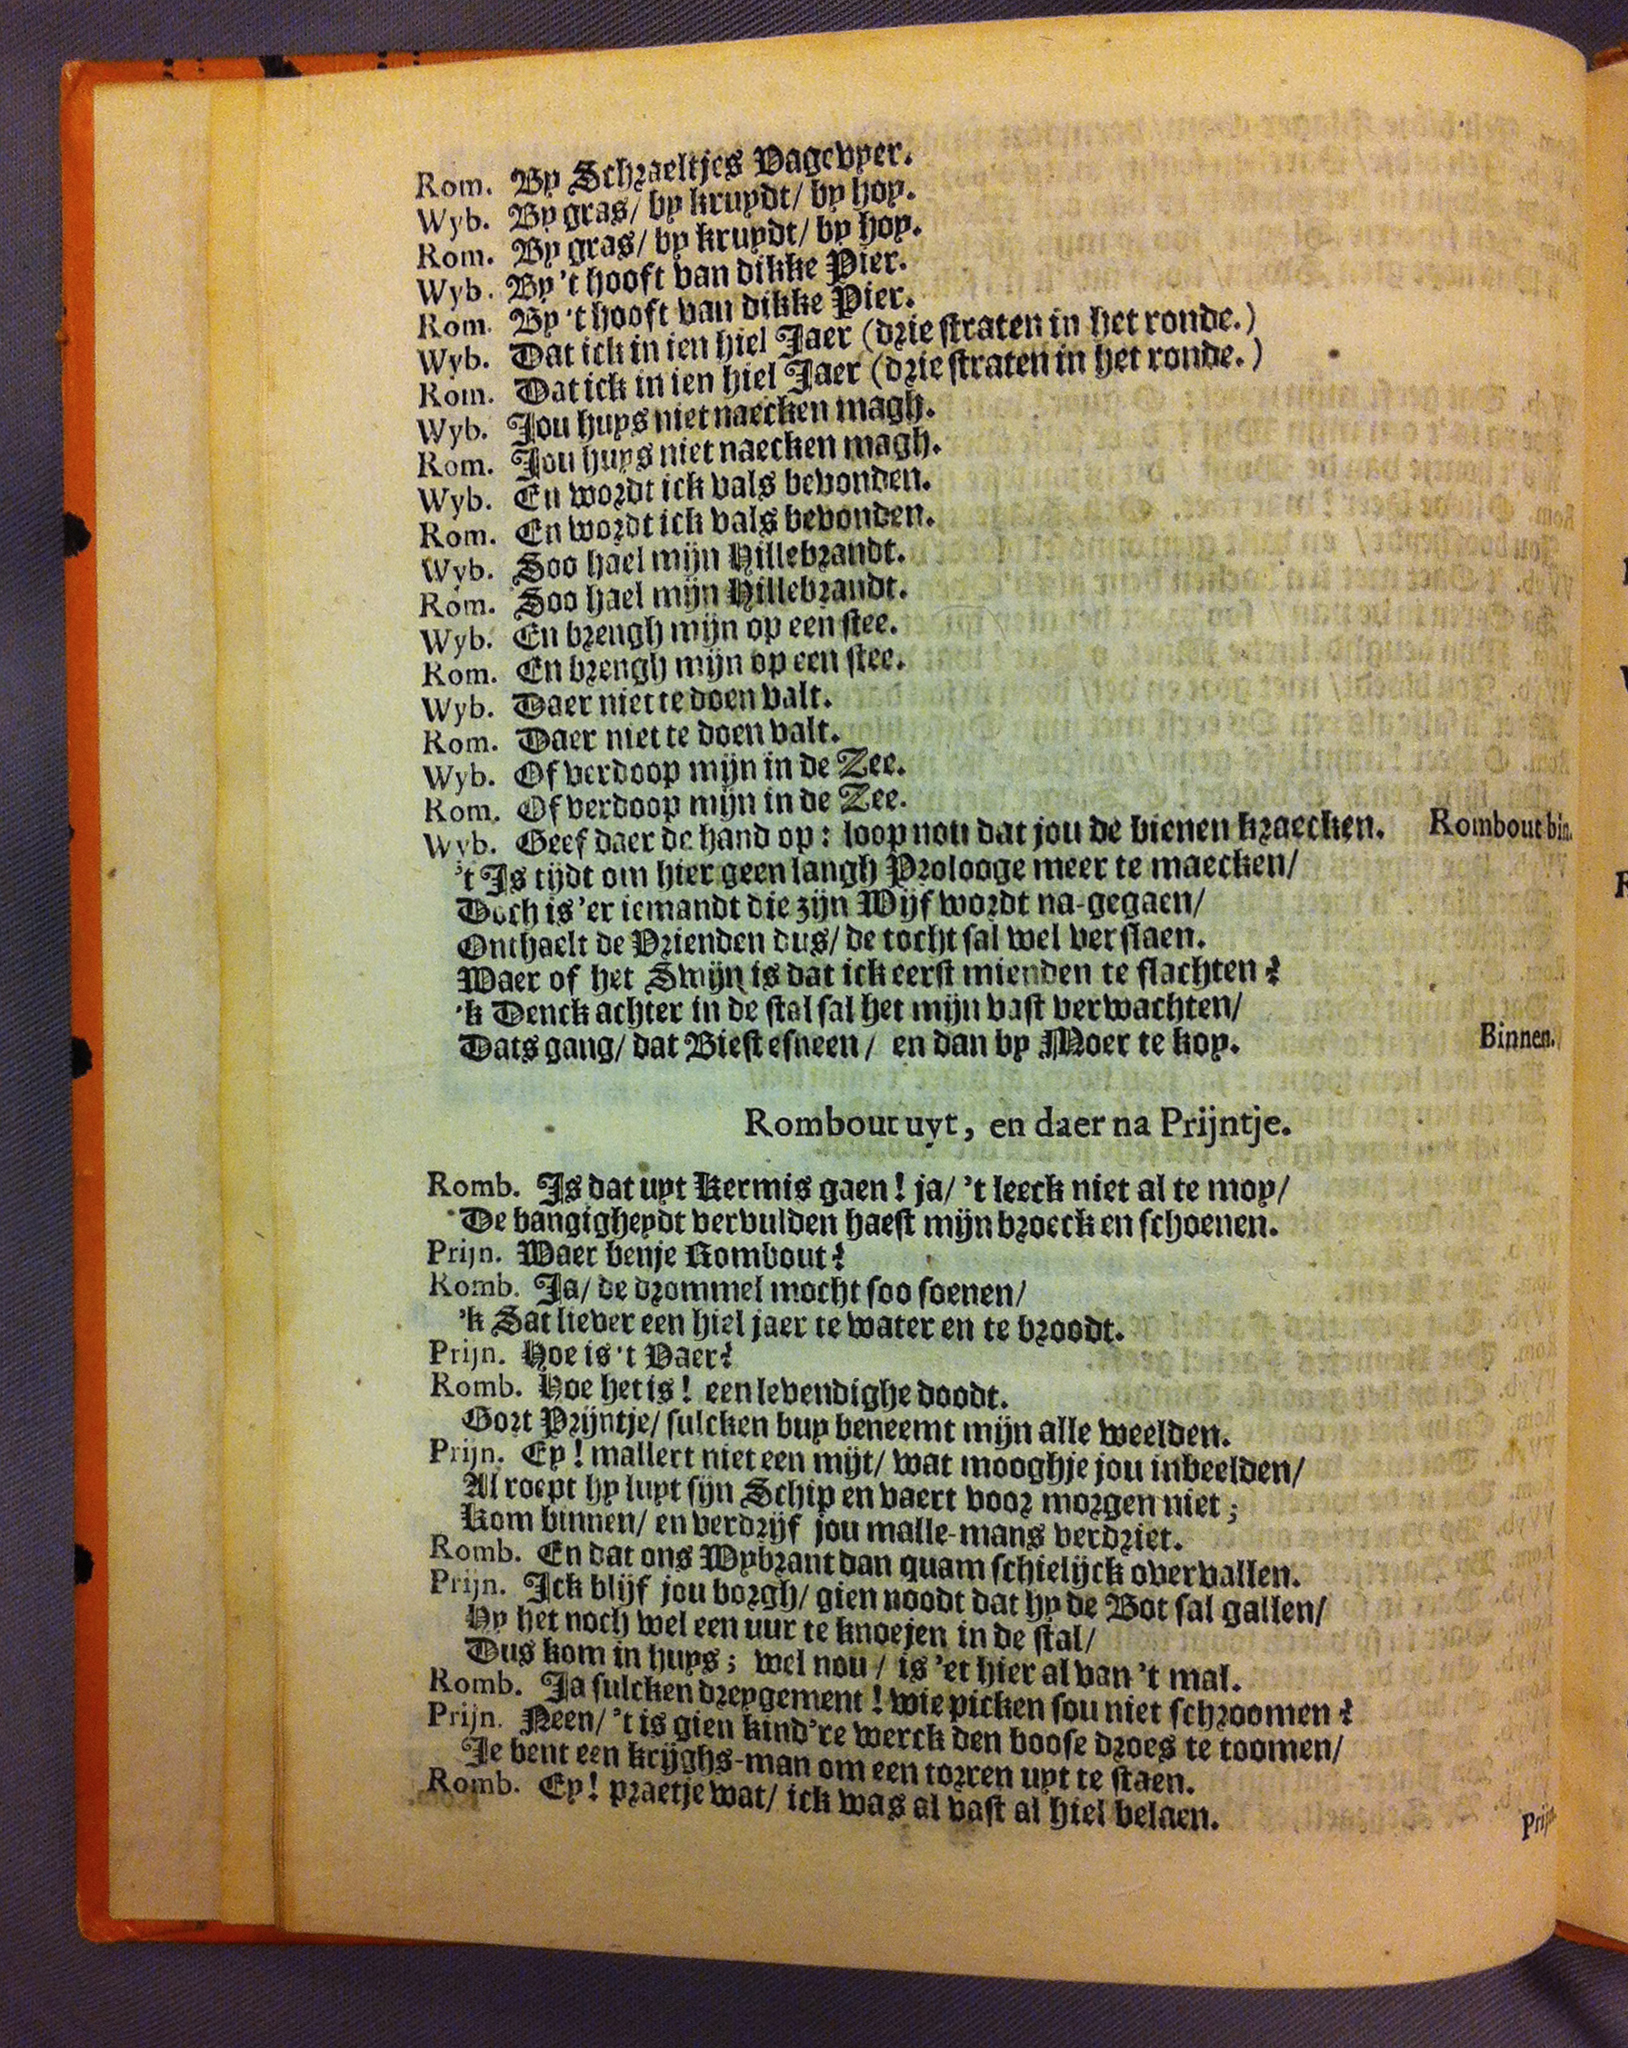 Rom. By Schraeltjes Vagevyer.
Wyb. By gras/ by kruydt/ by hoy.
Rom. By gras/ by kruydt/ by hoy.
Wyb. By 't hooft van dikke Pier.
Rom. By 't hooft van dikke Pier.
Wyb. Dat ick in ien hiel Jaer (drie straten in het ronde.)
Rom. Dat ick in ien hiel Jaer (drie straten in het ronde.)
Wyb. Jou huys niet naecken magh.
Rom. Jou huys niet naecken magh.
Wyb. En wordt ick vals bevonden.
Rom. En wordt ick vals bevonden.
Wyb. Soo hael mijn Hillebrandt.
Rom. Soo hael mijn Hillebrandt.
Wyb. En brengh mijn op een stee.
Rom. En brengh mijn op een stee.
Wyb. Daer niet te doen valt.
Rom. Daer niet te doen valt.
Wyb. Of verdoop mijn in de Zee.
Rom. Of verdoop mijn in de Zee.
Wyb. Geef daer de hand op: loop nou dat jou de bienen kraecken. Rombout bin.
't Is tijdt om hier geen langh Prolooge meer te maecken/
Doch is 'er iemandt die zijn Wijf wordt na-gegaen/
Onthaelt de Vrienden dus/ de tocht sal wel verslaen.
Waer of het Swijn is dat ick eerst mienden te slachten?
'k Denck achter in de stal sal het mijn vast verwachten/
Dats gang/ dat Biest esneen/ en dan by Moer te koy. Binnen.
Rombout uyt, en daer na Prijntje.
Romb. Is dat uyt kermis gaen! ja/ 't leeck niet al te moy/
De bangigheydt vervulden haest mijn broeck en schoenen.
Prijn. Waer benje Rombout?
Romb. Ja/ de drommel mocht soo soenen/
'k Sat liever een hiel jaer te water en te broodt.
Prijn. Hoe is 't Vaer?
Romb. Hoe het is! een levendighe doodt.
Gort Prijntje/ sulcken buy beneemt mijn alle weelden.
Prijn. Ey! mallert niet een mijt/ wat mooghje jou inbeelden/
Al roept hy luyt sijn Schip en vaert voor morgen niet;
Kom binnen/ en verdrijf jou malle-mans verdriet.
Romb. En dat ons Wybrant dan quam schielijck overvallen.
Prijn. Ick blijf jou borgh/ gien noodt dat hy de Bot sal gallen/
Hy het noch wel een uur te knoejen in de stal/
Dus kom in huys; wel nou/ is 'et hier al van 't mal.
Romb. Ja sulcken dreygement! wie picken sou niet schroomen?
Prijn. Neen/ 't is gien kind're werck den boose droes te toomen/
Je bent een krijghs-man om een torren uyt te staen.
Romb. Ey! praetje wat/ ick was al vast al hiel belaen.
Prijn.